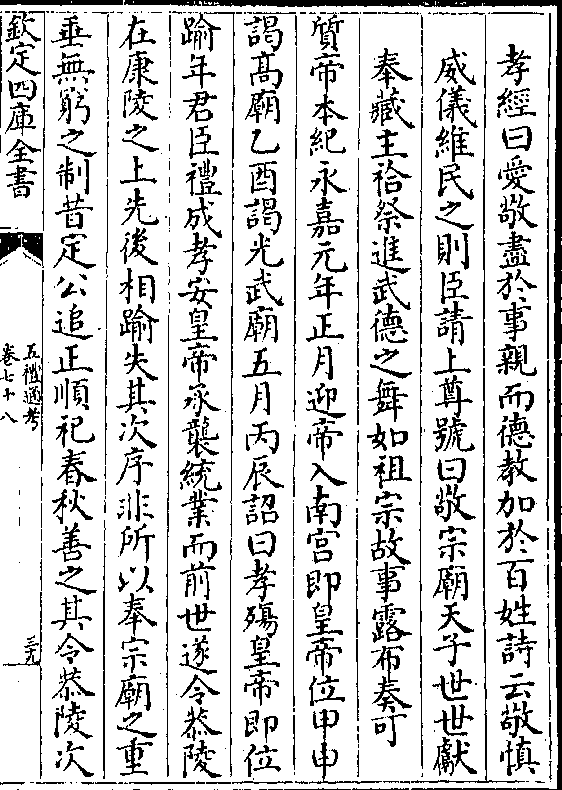 孝經曰愛敬盡於事親而德教加於百姓詩云敬慎
威儀維民之則臣請上尊號曰敬宗廟天子世世獻
奉藏主祫祭進武德之舞如祖宗故事露布奏可
質帝本紀永嘉元年正月迎帝入南宫即皇帝位甲申
謁髙廟乙酉謁光武廟五月丙辰詔曰孝殤皇帝即位
踰年君臣禮成孝安皇帝承襲統業而前世遂令恭陵
在康陵之上先後相踰失其次序非所以奉宗廟之重
垂無窮之制昔定公追正順祀春秋善之其令恭陵次
欽定四庫全書
五禮通考
卷七十八
三九